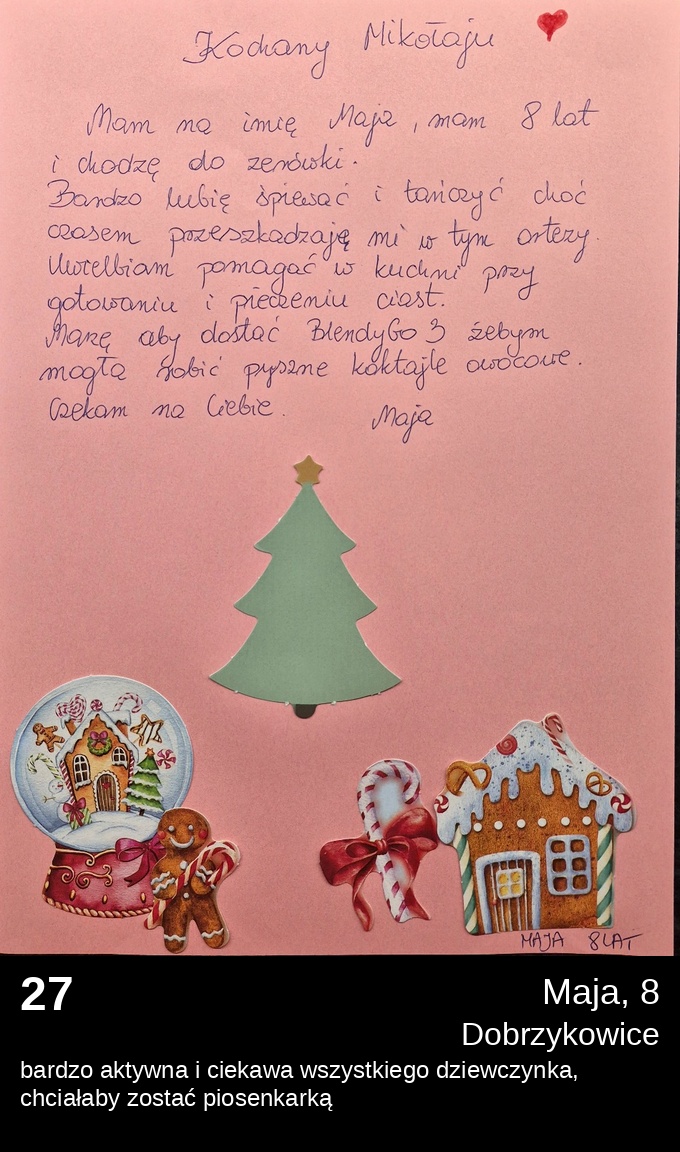 Kochany Mikołaju
Mam na imię Maja, mam 8 lat
i chodzę do zerówki.
Bardzo lubię śpiewać i tańczyć choć
czasem przeszkadzają mi w tym ortezy.
Uwielbiam pomagać w kuchni przy
gotowaniu i pieczeniu ciast.
Marzę aby dostać BlendyGo 3 żebym
mogła robić pyszne koktajle owocowe.
Czekam na Ciebie.
Maja
MAJA 8 LAT
27
Maja, 8
Dobrzykowice
bardzo aktywna i ciekawa wszystkiego dziewczynka,
chciałaby zostać piosenkarką